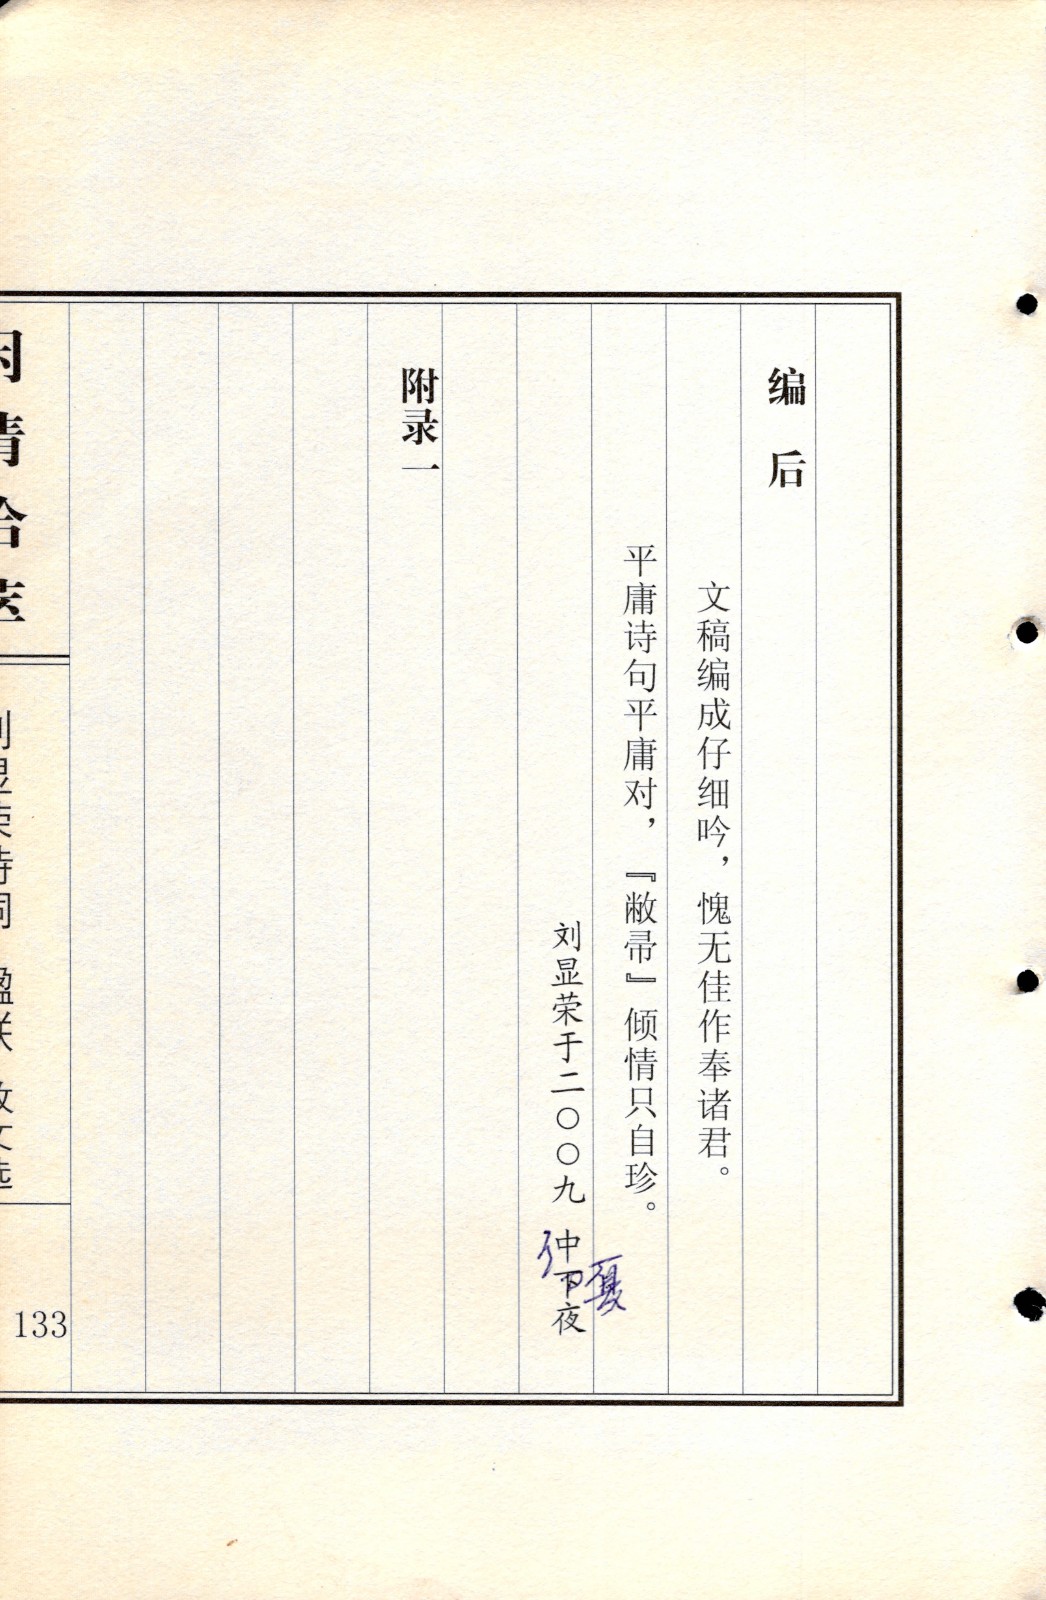 编后
文稿编成仔细吟，愧无佳作奉诸君。
平庸诗句平庸对，『敝帚』倾情只自珍。
刘显荣于二〇〇九 仲夏夜
附录一
情拾萃
刘显荣诗词 楹联 散文选
133